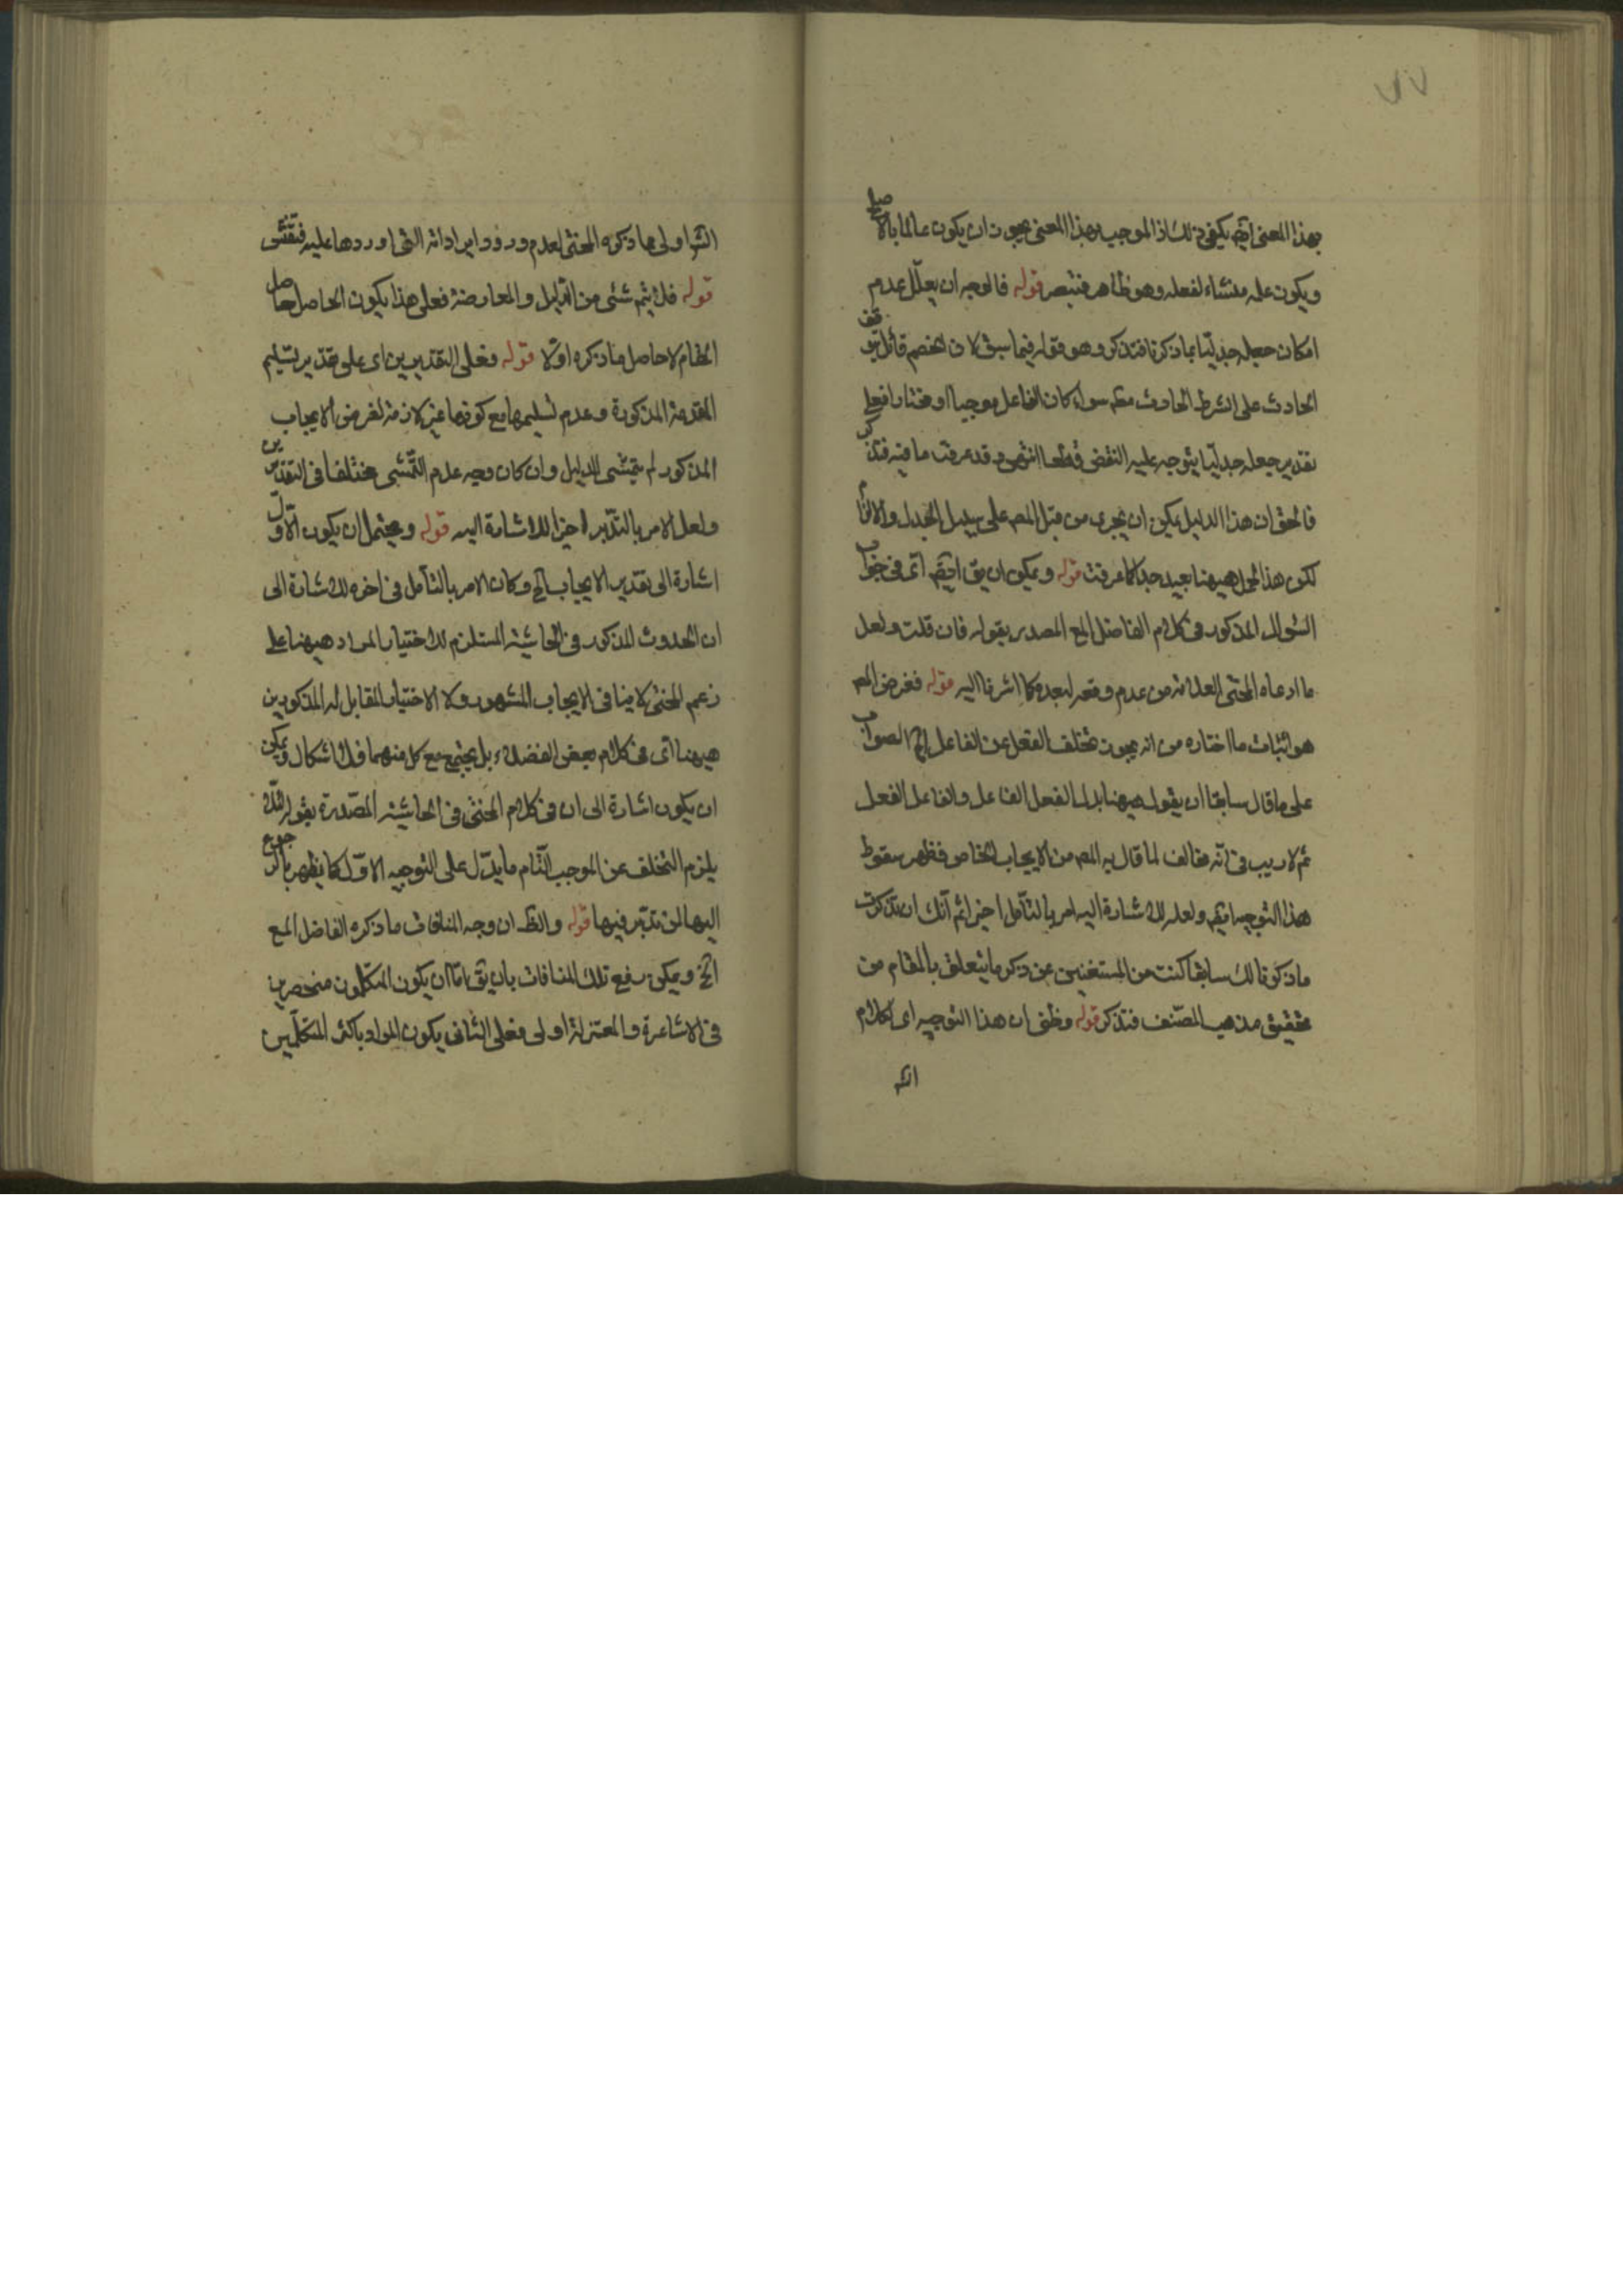 بهذا المعنى ايضم يكفى ذلك اذ الموجب بهذا المعنى يجوز ان يكون عالما بالاصلح
ويكون علمه منشاء لفعله وهو ظاهر فتبصر قوله فالوجه ان يعلل عدم
امكان جعله جدليا بما ذكرنا فتذكر وهو قوله فيما سبق لان الخصم قائل بتوقف
الحادث على الشرط الحادث معه سواء كان الفاعل موجبا او مختارا فعلى
تقدير جعله جدليا يتوجه عليه النقض قطعا انتهى وقد عرفت ما فيه فتذكر
فالحق ان هذا الدليل يمكن ان يجرى من قبل المصم على سبيل الجدل والالزام
لكن هذا الحمل ههنا بعيد جدا كما عرفت قوله ويمكن ان يق ايضم اى فى جواب
السوال المذكور فى كلام الفاضل المع المصدر بقوله فان قلت ولعل
ما ادعاه المحشى العلامة من عدم وقعه لبعده كما اشرنا اليه قوله فغرض المصم
هو اثبات ما اختاره من انه يجوز تخلف الفعل عن الفاعل الخ الصواب
على ما قال سابقا ان يقول ههنا بدل الفعل الفاعل والفاعل الفعل
ثم لا ريب فى انه مخالف لما قال به المصم من الايجاب الخاص فظهر سقوط
هذا التوجيه ايضم ولعله للاشارة اليه امر بالتأمل اخيرا ثم انك ان تذكرت
ما ذكرنا لك سابقا كنت من المستغنين عن ذكر ما يتعلق بالمقام من
تحقيق مذهب المصنف فتذكر قوله وظنى ان هذا التوجيه اى لكلام
الشم
الشم اولى مما ذكره المحشى لعدم ورود ايراداته التى اوردها عليه فتفتش
قوله فلا يتم شئى من الدليل والمعارضة فعلى هذا يكون الحاصل حاصل
المقام لا حاصل ما ذكره اولا قوله فعلى التقديرين اى على تقدير تسليم
المقدمة المذكورة وعدم تسليمها مع كونها غير لازمة لفرض الايجاب
المذكور لم يتمشى الدليل وان كان وجه عدم التمشى مختلفا فى التقديرين
ولعل الامر بالتدبر اخيرا للاشارة اليه قوله ويحتمل ان يكون الاول
اشارة الى تقدير الايجاب الخ وكان الامر بالتأمل فى اخره للاشارة الى
ان الحدوث المذكور فى الحاشية المستلزم للاختيار المراد ههنا على
زعم المحشى لا ينافى الايجاب المشهور ولا الاختيار المقابل له المذكورين
ههنا اى فى كلام بعض الفضلاء بل يجتمع مع كل منهما فلا اشكال ويمكن
ان يكون اشارة الى ان فى كلام المحشى فى الحاشية المصدرة بقوله لئلا
يلزم التخلف عن الموجب التام ما يدل على التوجيه الاول كما يظهر بالرجوع
اليها لمن تدبر فيها قوله والظ ان وجه المنافات ما ذكره الفاضل المع
الخ ويمكن رفع تلك المنافات بان يق اما ان يكون المتكلمون منحصرين
فى الاشاعرة والمعتزلة او لى فعلى الثانى يكون المراد باكثر المتكلمين